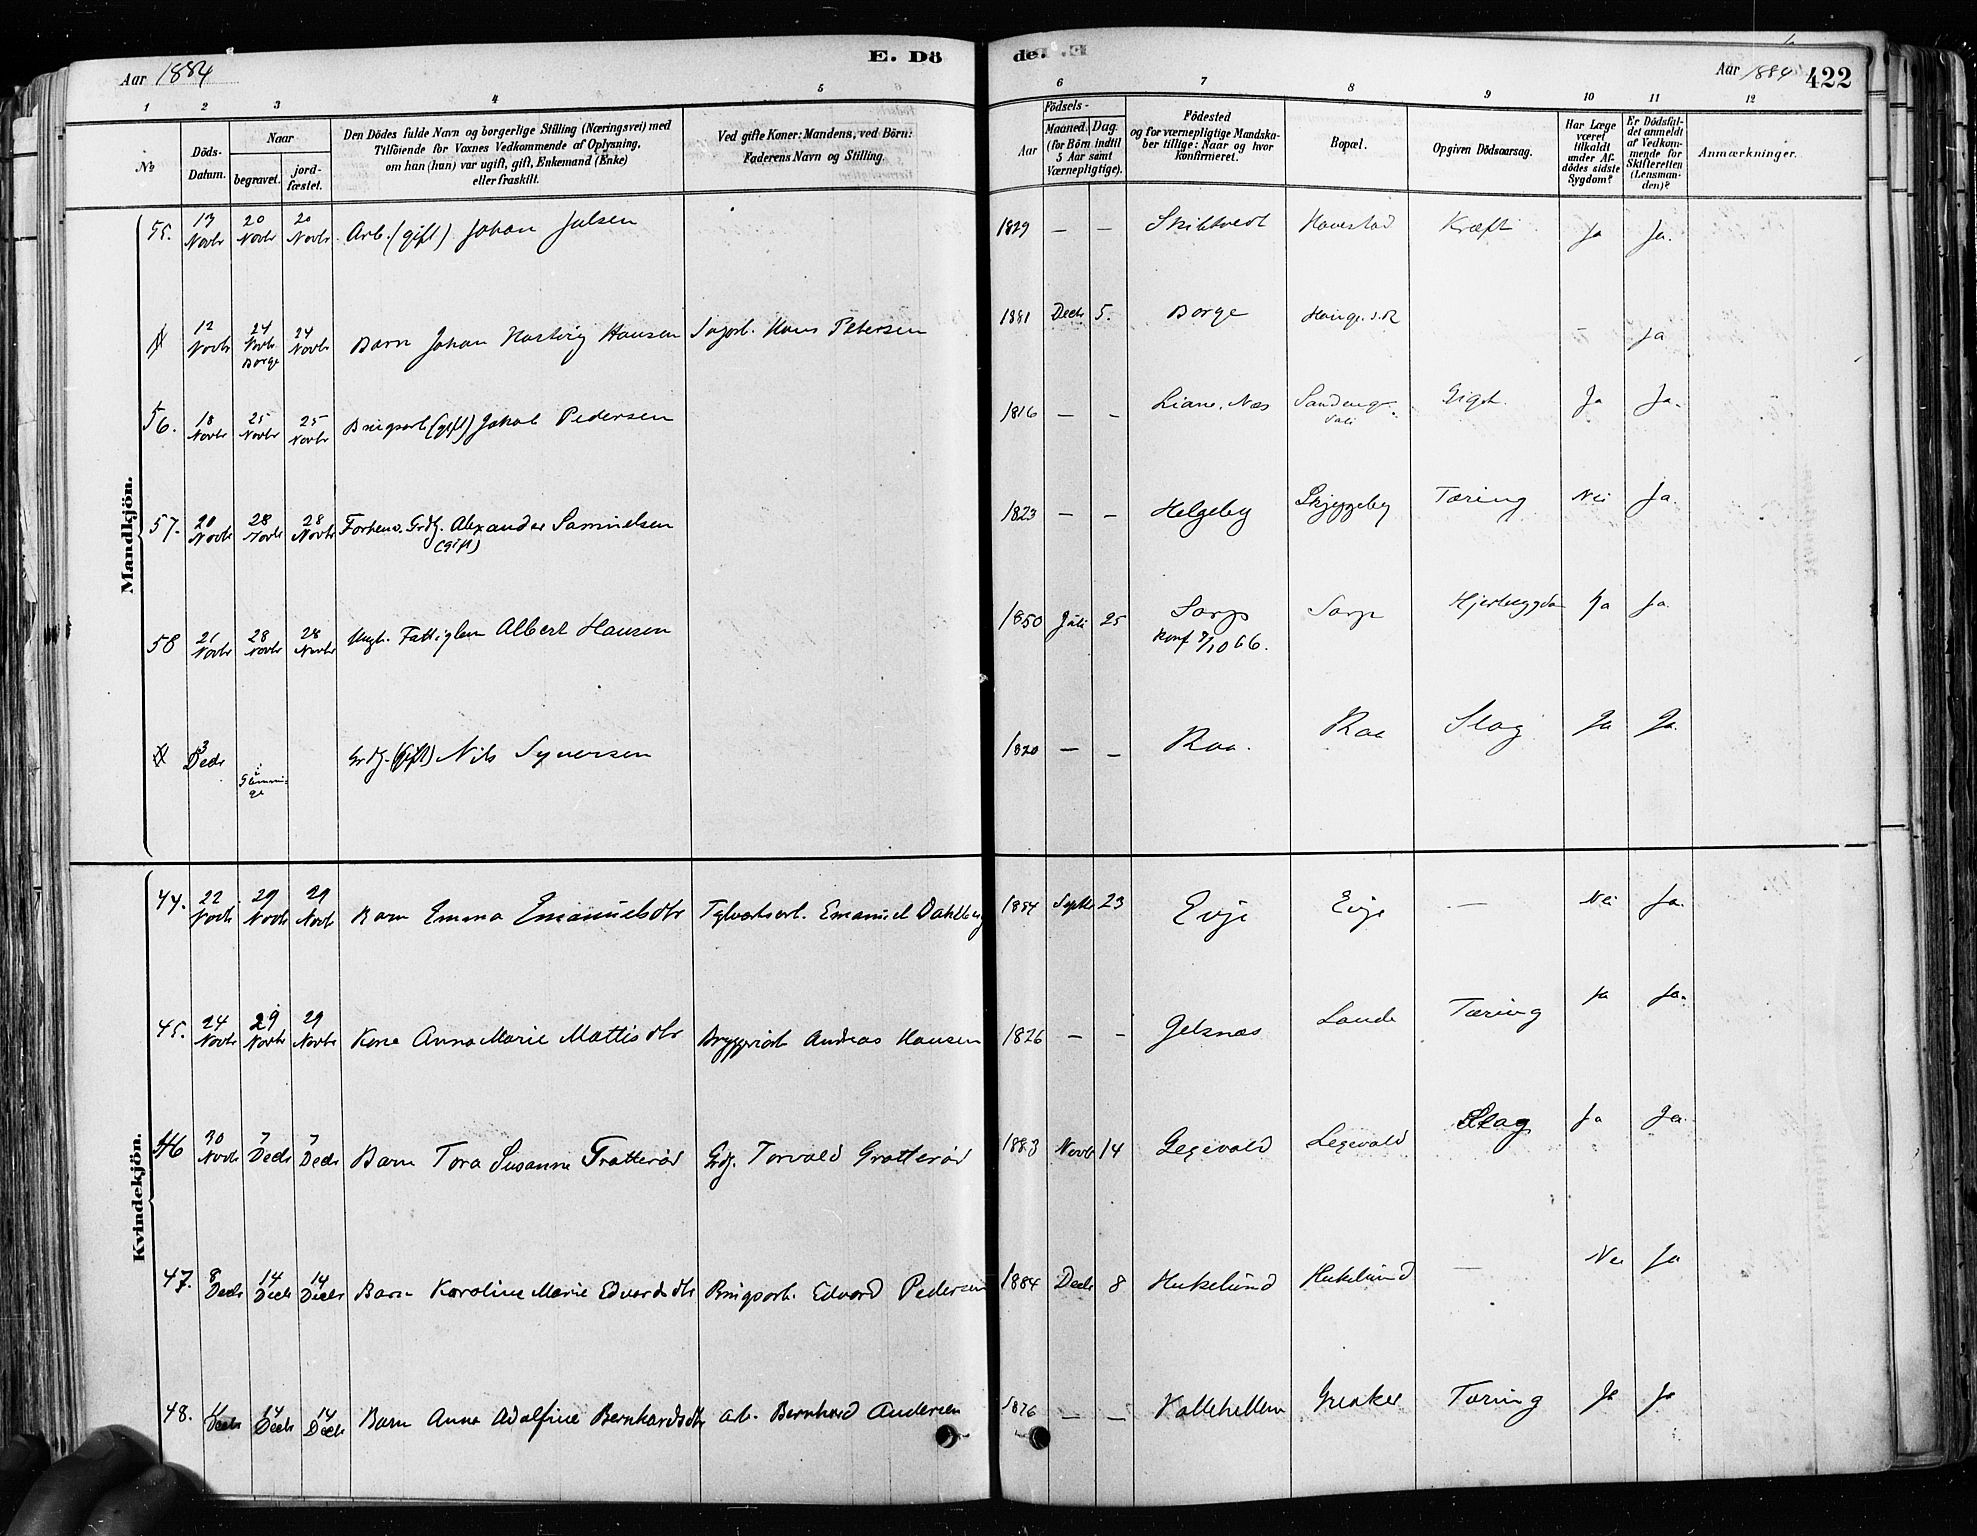 Aar 1884
E. Dö
de.
Aar 1884
422
1 2 3 4 5 6 7 8 9 10 11 12
№
Döds-Datum.
Naar
begravet.
jord-fæstet.
Den Dödes fulde Navn og borgerlige Stilling (Næringsvei) med
Tilföiende for Voxnes Vedkommende af Oplysning,
om han (hun) var ugift, gift, Enkemand (Enke)
eller fraskilt.
Ved gifte Koner: Mandens, ved Börn:
Faderens Navn og Stilling.
Födsels-
Aar
Maaned. Dag.
(for Börn indtil
5 Aar samt
Værnepligtige).
Födested
og for værnepligtige Mandska-
ber tillige: Naar og hvor
konfirmeret.
Bopæl.
Opgiven Dödsaarsag.
Har Læge
været
tilkaldt
under Af-
dödes sidste
Sygdom?
Er Dödsfal-
det anmeldt
af Vedkom-
mende for
Skifteretten
(Lensman-
den)?
Anmærkninger.
Mandkjön.
55. 13 Novbr 20 Novbr 20 Novbr Arb. (gift) Johan Julsen 1829 — — Skibtvedt Havestad Kræft Ja Ja.
12 Novbr 24 Novbr Borge 24 Novbr Barn Johan Hansen Sagarb. Hans Petersen 1881 Decb 5. Borge — Ja
56. 18 Novbr 25 Novbr 25 Novbr Brugsarb (gift) Jakob Pedersen 1816 — — Liane, Næs Gigt. Ja Ja.
57. 20 Novbr 28 Novbr 28 Novbr Forhenv. Grdbr. Alexander Samuelsen (gift) 1823 — — Helgeby Skjeggeby Tæring Nei Ja.
58 21 Novbr 28 Novbr 28 Novbr Ungk. Fattiglem Albert Hansen 1850 Juli 25 Sarp Konf 7/10 66. Sarp Ja Ja.
3 Decbr Grdbr. (Gift) Nils Syversen 1820 — — Raa. Raa Slag Ja Ja.
Kvindekjön.
44. 22 Novbr 29 Novbr 29 Novbr Barn Emma Emanuelsdtr Emanuel Dahlberg 1884 Septbr 23 Evje Evje — Nei Ja.
45. 24 Novbr 29 Novbr 29 Novbr Kone Anna Marie Mattisdtr Andreas Hansen 1826 — — Gelsnæs Lande Tæring Ja Ja.
46 30 Novbr 7 Decbr 7 Decbr Barn Tora Susanne Gratterød Grdbr. Torvald Gratterød 1883 Novbr 14 Legevold Legevold Slag Ja Ja.
47. 8 Decbr 14 Decbr 14 Decbr Barn Karoline Marie Edvardsdtr Brugsarb. Edvard Pedersen 1884 Decbr 8 Hukelund Hukelund — Nei Ja
48. 11 Decbr 14 Decbr 14 Decbr Barn Anna Adolfine Bernhardsdtr Arb. Bernhard Andersen 1876 — — Kallehellen Greaker Tæring Ja Ja